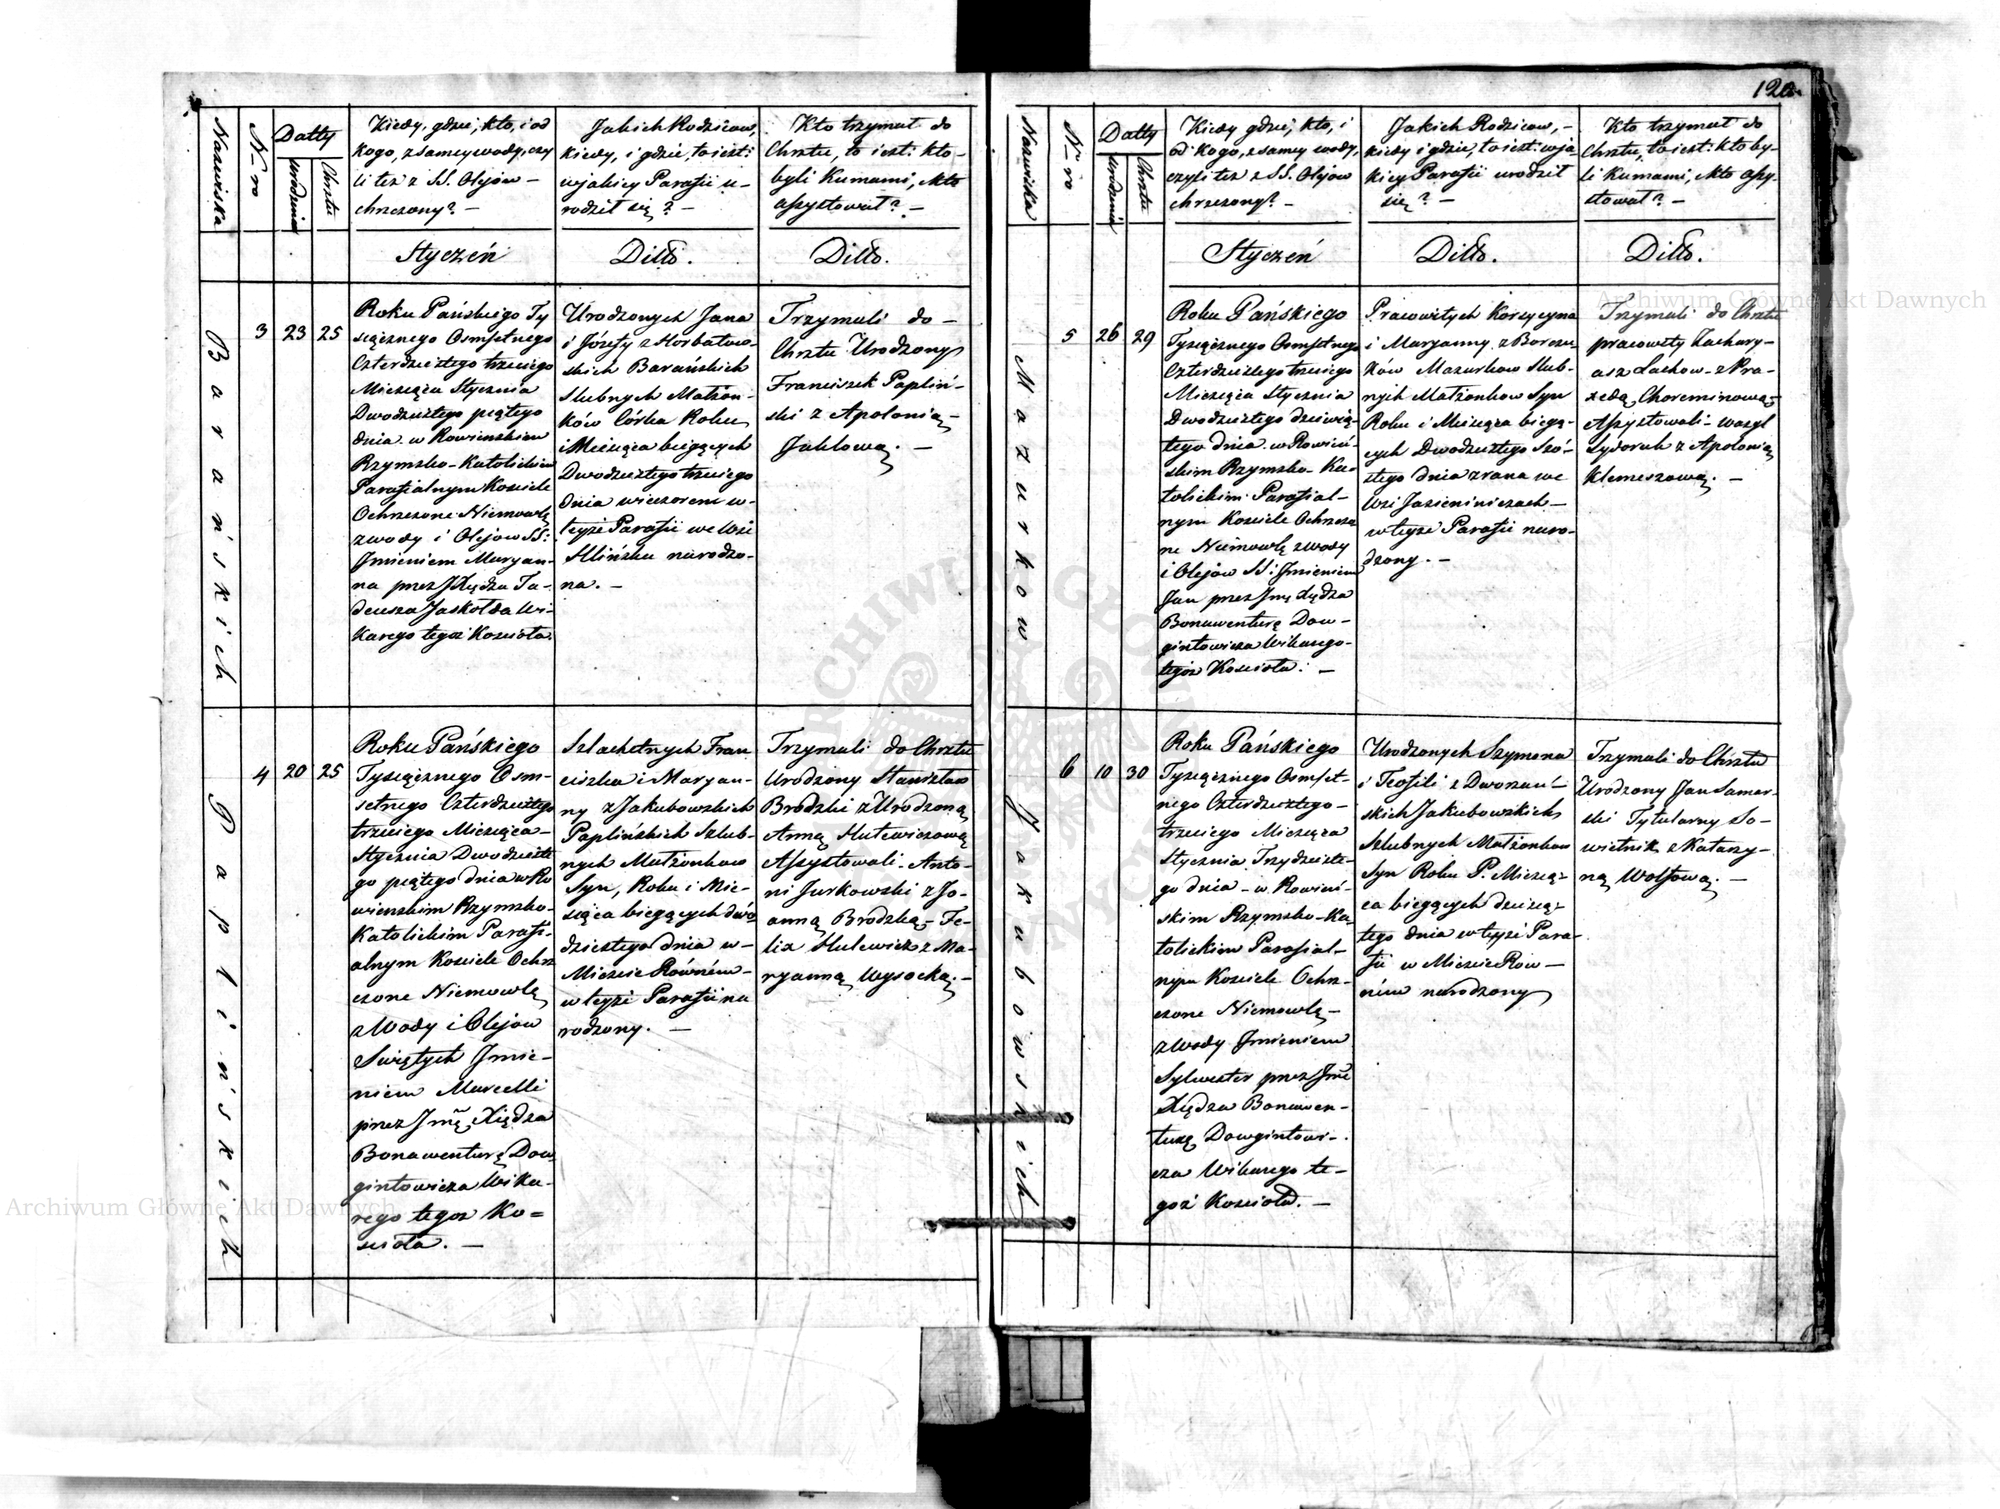 120
Nazwiska
N-ro
Datty
urodzenia
Chrztu
Kiedy, gdzie, kto, i od
kogo, z samey wody, czy
li też z SS. Olejów –
chrzczony? –
Jakich Rodziców,
kiedy, i gdzie, to iest:
w jakiey Parafii u-
rodził się? –
Kto trzymał do
Chrztu, to iest: kto
byli Kumami, i kto
assystował? –
Styczeń
Ditto.
Ditto.
Barańskich
3
23
25
Roku Pańskiego Ty
siącznego Osmsetnego
Czterdziestego trzeciego
Miesiąca Stycznia
Dwódziestego piątego
dnia w Rowienskim
Rzymsko-Katolickim
Parafialnym Kosciele
Ochrzczone Niemowlę
z wody i Olejow SS:
Imieniem Maryan-
na przez JXiędza Ta-
deusza Jaskołda Wi-
karego tegoż Kosciola
Urodzonych Jana
i Józefy z Horbatow-
skich Barańskich
Slubnych Małżon-
ków Córka Roku
i Miesiąca bieżących
Dwódziestego trzeciego
dnia wieczorem w-
teyże Parafii we Wsi
Hlińsku narodzo-
na. –
Trzymali do –
Chrztu Urodzony
Franciszek Papliń-
ski z Apolonią
Jahlową. –
Paplińskich
4
20
25
Roku Pańskiego
Tysiącznego Osm-
setnego Czterdziestego
trzeciego Miesiąca –
Stycznia Dwodzieste
go piątego dnia w Ro
wienskim Rzymsko-
Katolickim Parafi-
alnym Kosciele Ochrz
czone Niemowlę
z Wody i Olejow
Swiętych Imie-
niem Marcelli
przez Jmę Xiędza
Bonawenturę Dow
gintowicza Wika-
rego tegoż Ko=
sciola. –
Szlachetnych Fran
ciszka i Maryan-
ny z Jakubowskich
Paplińskich Szlub-
nych Małżonkow
Syn, Roku i Mie-
siąca bieżących dwó
dziestego dnia w-
Miescie Rownem –
w teyże Parafii na
rodzony. –
Trzymali do Chrztu
Urodzony Stanisław
Brodzki z Urodzoną
Anną Hulewiczową
Assystowali – Anto-
ni Jurkowski z Jo-
anną Brodzką – Fe-
lix Hulewicz z Ma-
ryanną Wysocką. –
Nazwiska
N-ro
Datty
urodzenia
Chrztu
Kiedy gdzie, kto, i
od kogo, z samey wody,
czyli też z SS. Olejów
chrzczony? –
Jakich Rodzicow, –
kiedy i gdzie, to iest: w ja
kiey Parafii urodził
się? –
Kto trzymał do
Chrztu, to iest: kto by-
li Kumami, i kto assy-
stował? –
Styczeń
Ditto.
Ditto.
Mazurkow
5
26
29
Roku Pańskiego
Tysiącznego Osmsetnego
Czterdziestego trzeciego
Miesiąca Stycznia
Dwódziestego dziewią-
tego dnia w Rowień-
skim Rzymsko-Ka-
tolickim Parafial-
nym Kosciele Ochrzcz
ne Niemowlę z Wody
i Olejów SS: Imieniem
Jan przez Jmę Xiędza
Bonawenturę Dow-
gintowicza Wikarego-
tegoż Kosciola. –
Pracowitych
i Maryanny z
ków Mazurkow Slub-
nych Małżonkow Syn
Roku i Miesiąca bieżą-
cych Dwódziestego Szó-
stego dnia z rana we
Wsi Jasieniniczach –
w teyże Parafii naro-
dzony. –
Trzymali do Chrztu
pracowity Zachary-
asz Lachow – z Pra-
xedą Choreminową –
Assystowali – Wasyl
Sydoruk z Apolonią
Klemeszową. –
Jakubowskich
6
10
30
Roku Pańskiego
Tysiącznego Osmset-
nego Czterdziestego –
trzeciego Miesiąca
Stycznia Trzydzieste-
go dnia – w Rowień-
skim Rzymsko-Ka-
tolickim Parafial-
nym Kosciele Ochrz-
czone Niemowlę –
z Wody Imieniem
Sylwester przez Jmę
Xiędza Bonawen-
turę Dowgintowi-
cza Wikarego te-
goż Kosciola. –
Urodzonych Szymona
i Teofili z Dworzań-
skich Jakubowskich
Szlubnych Małżonkow
Syn Roku P. Miesią-
ca bieżących dziesią-
tego dnia w teyże Para-
fii w Miescie Rów –
nem narodzony
Trzymali do Chrztu
Urodzony Jan Samar-
ski Tytularny So-
wietnik z Katarzy-
ną Wolfową. –
Archiwum Główne Akt Dawnych
Archiwum Główne Akt Dawnych